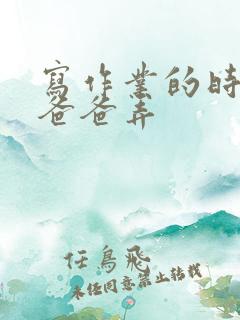 寫作業的時
爸爸弄
任鳥飛
未經同意禁止轉載